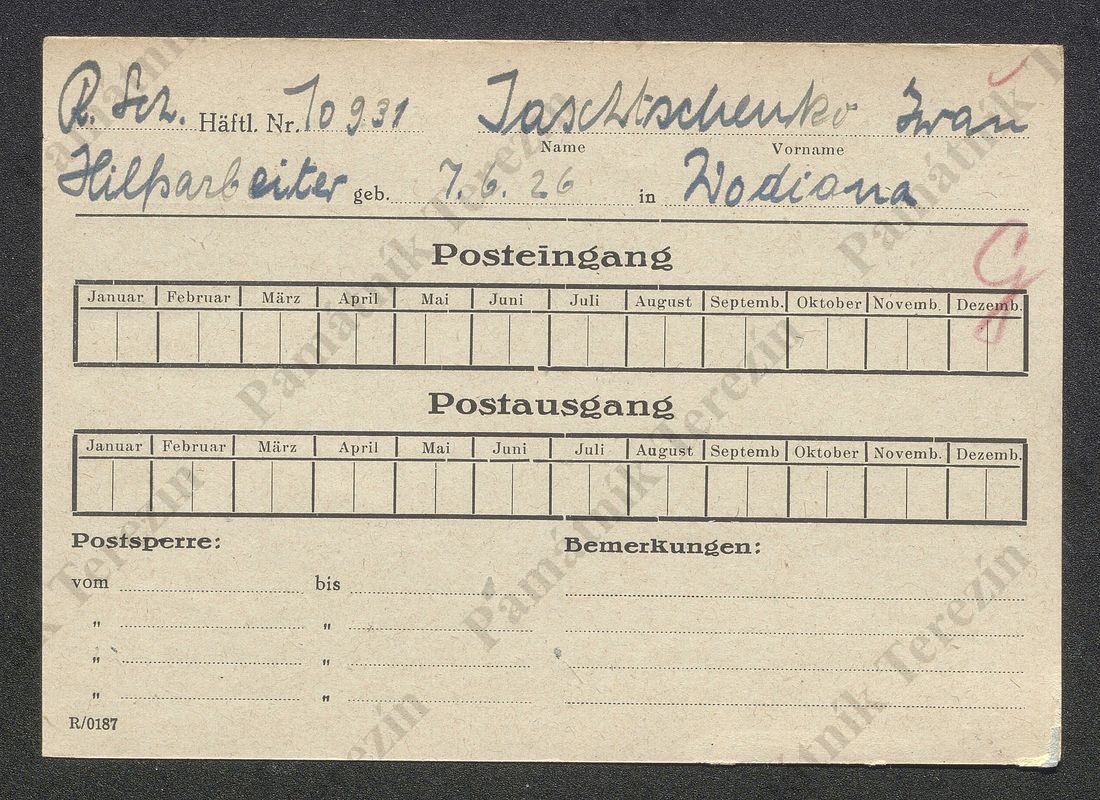 R. Sch. Häftl. Nr. 10931 Jaschtschenko Iwan
Name Vorname
Hilfsarbeiter geb. 7.6.26 in Wodiana
Posteingang
Januar Februar März April Mai Juni Juli August Septemb. Oktober Novemb. Dezemb.
Postausgang
Januar Februar März April Mai Juni Juli August Septemb Oktober Novemb. Dezemb.
Postsperre: Bemerkungen:
vom bis
" "
" "
" "
R/0187
G
Památník Terezín